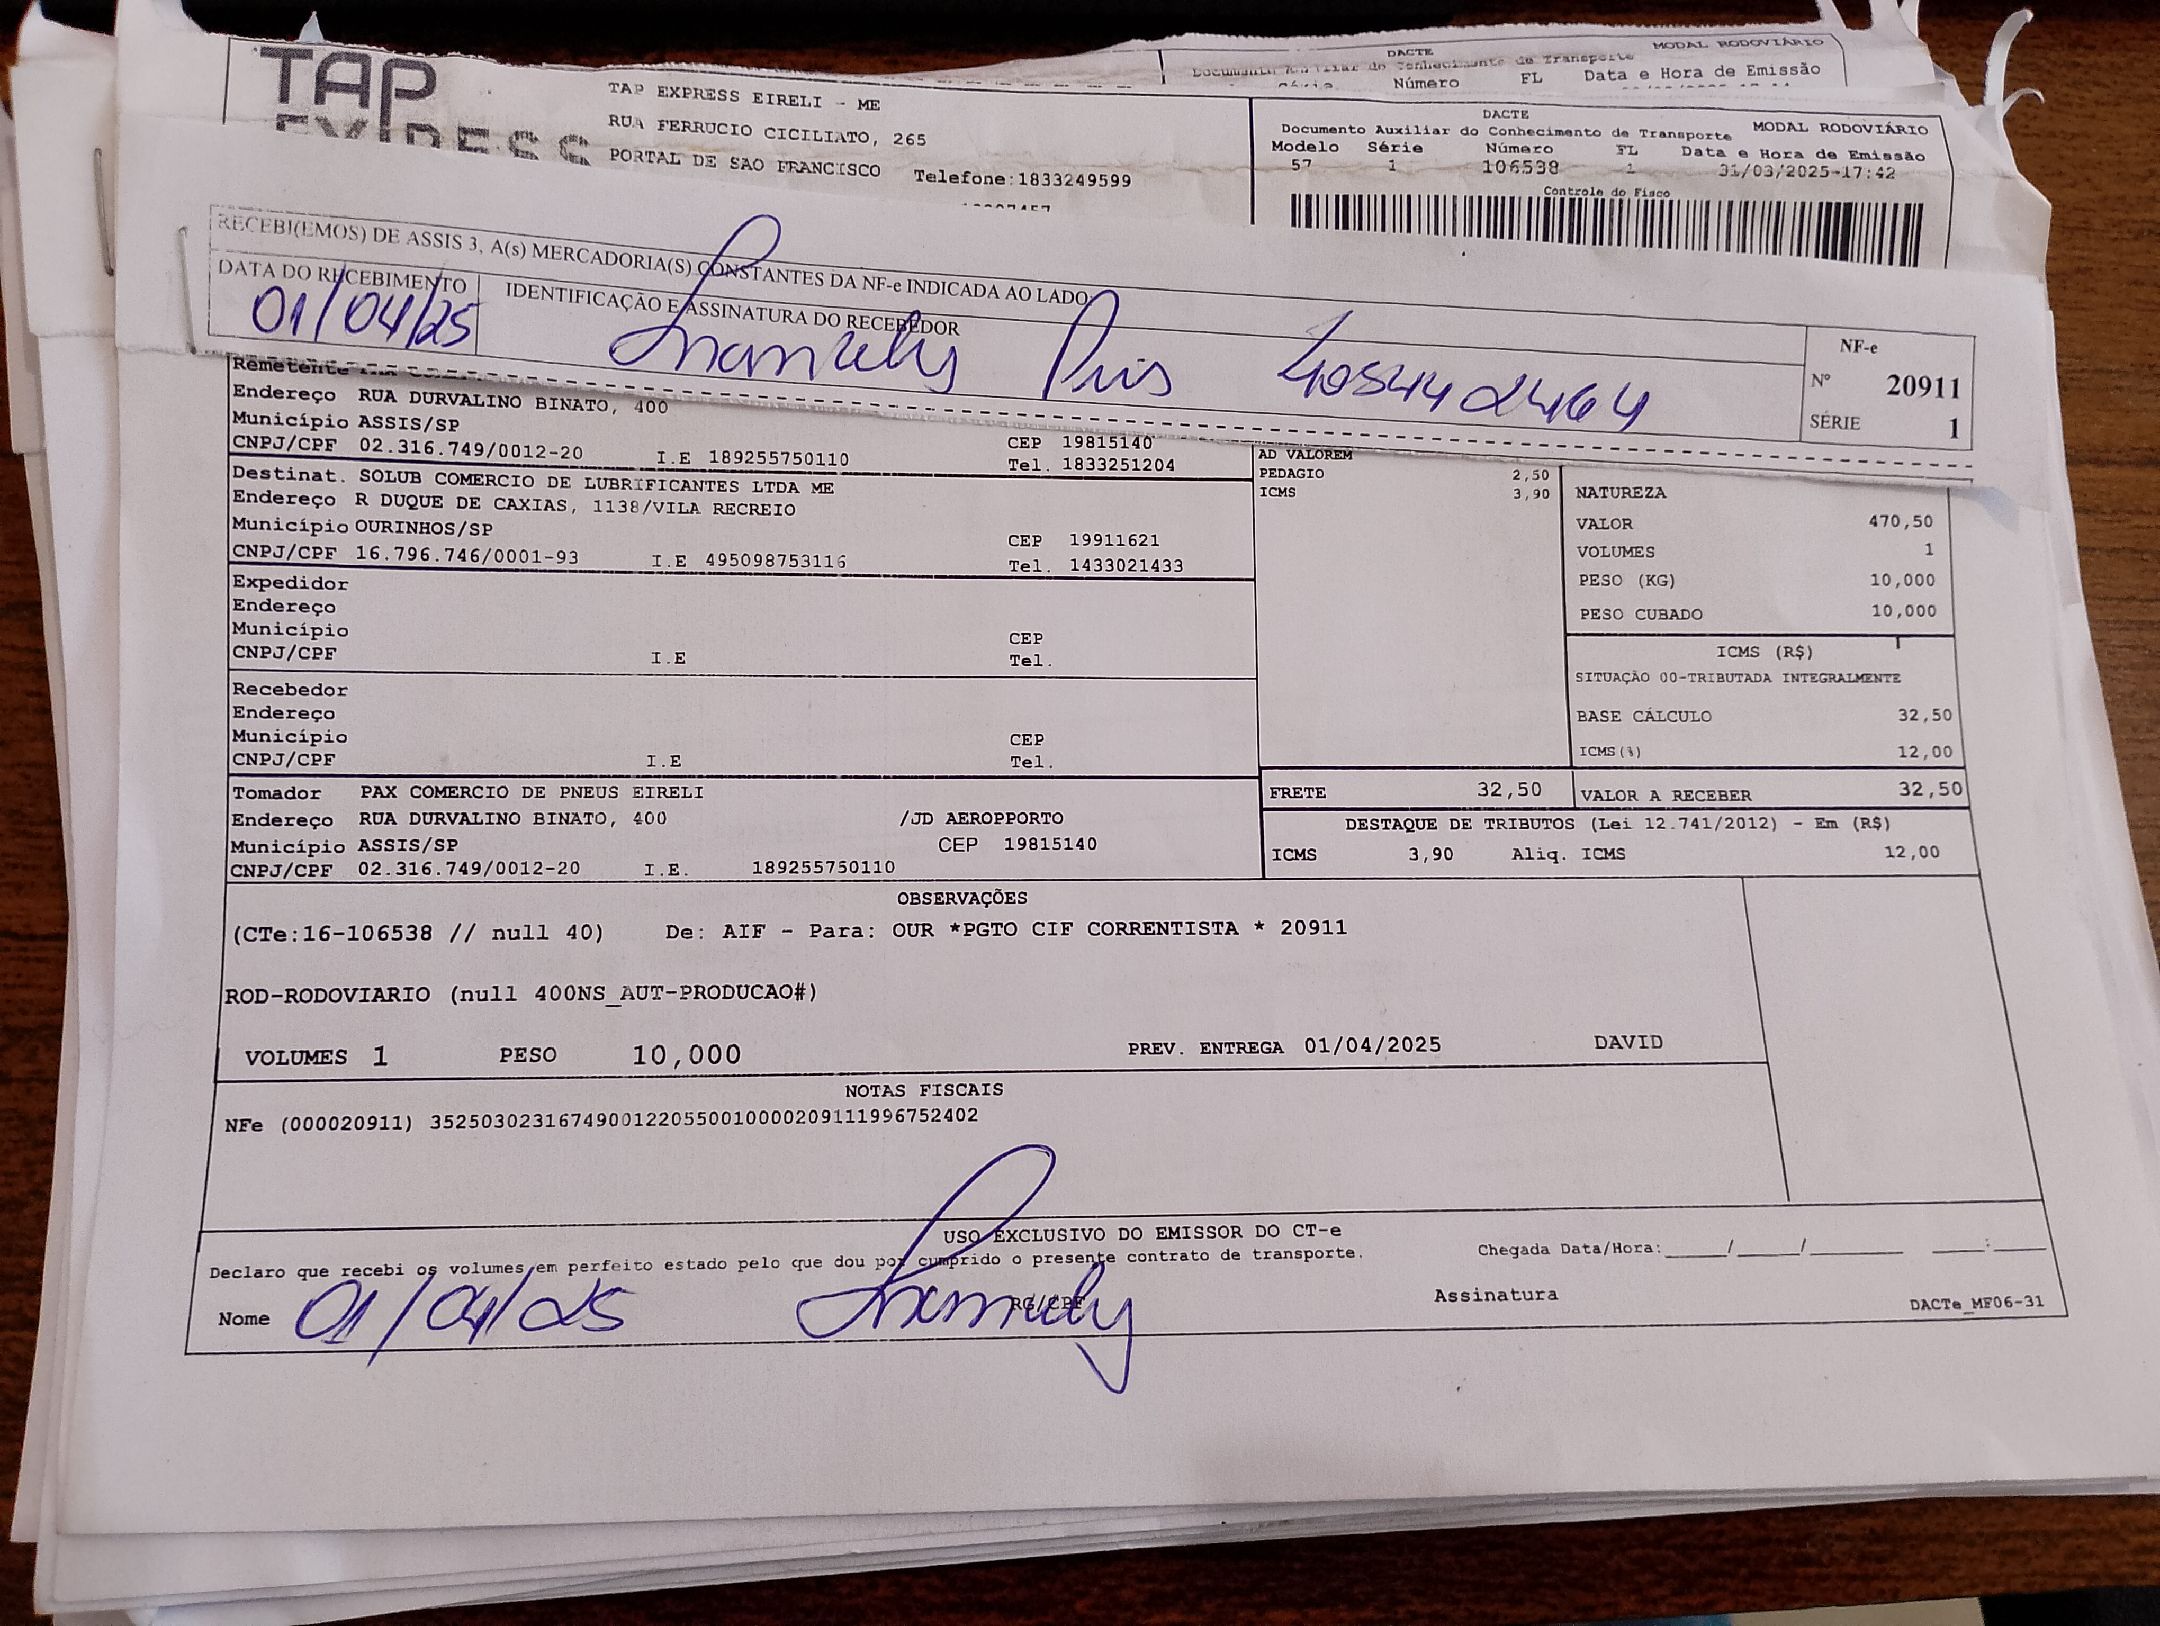 DACTE
MODAL RODOVIÁRIO
Número FL Data e Hora de Emissão
TAP
EXPRESS
TAP EXPRESS EIRELI - ME
RUA FERRUCIO CICILIATO, 265
PORTAL DE SAO FRANCISCO Telefone:1833249599
DACTE
Documento Auxiliar do Conhecimento de Transporte MODAL RODOVIÁRIO
Modelo Série Número FL Data e Hora de Emissão
57 1 106538 1 31/03/2025-17:42
Controle do Fisco
RECEBI(EMOS) DE ASSIS 3, A(s) MERCADORIA(S) CONSTANTES DA NF-e INDICADA AO LADO:
DATA DO RECEBIMENTO IDENTIFICAÇÃO E ASSINATURA DO RECEBEDOR
01/04/25
NF-e
Nº 20911
SÉRIE 1
Remetente
Endereço RUA DURVALINO BINATO, 400
Município ASSIS/SP CEP 19815140
CNPJ/CPF 02.316.749/0012-20 I.E 189255750110 Tel. 1833251204
Destinat. SOLUB COMERCIO DE LUBRIFICANTES LTDA ME
Endereço R DUQUE DE CAXIAS, 1138/VILA RECREIO
Município OURINHOS/SP CEP 19911621
CNPJ/CPF 16.796.746/0001-93 I.E 495098753116 Tel. 1433021433
Expedidor
Endereço
Município CEP
CNPJ/CPF I.E Tel.
Recebedor
Endereço
Município CEP
CNPJ/CPF I.E Tel.
Tomador PAX COMERCIO DE PNEUS EIRELI
Endereço RUA DURVALINO BINATO, 400 /JD AEROPPORTO
Município ASSIS/SP CEP 19815140
CNPJ/CPF 02.316.749/0012-20 I.E. 189255750110
AD VALOREM
PEDAGIO 2,50
ICMS 3,90
NATUREZA
VALOR 470,50
VOLUMES 1
PESO (KG) 10,000
PESO CUBADO 10,000
ICMS (R$)
SITUAÇÃO 00-TRIBUTADA INTEGRALMENTE
BASE CÁLCULO 32,50
ICMS(%) 12,00
FRETE 32,50 VALOR A RECEBER 32,50
DESTAQUE DE TRIBUTOS (Lei 12.741/2012) - Em (R$)
ICMS 3,90 Aliq. ICMS 12,00
OBSERVAÇÕES
(CTe:16-106538 // null 40) De: AIF - Para: OUR *PGTO CIF CORRENTISTA * 20911
ROD-RODOVIARIO (null 400NS_AUT-PRODUCAO#)
VOLUMES 1 PESO 10,000 PREV. ENTREGA 01/04/2025 DAVID
NOTAS FISCAIS
NFe (000020911) 35250302316749001220550010000209111996752402
USO EXCLUSIVO DO EMISSOR DO CT-e
Declaro que recebi os volumes em perfeito estado pelo que dou por cumprido o presente contrato de transporte. Chegada Data/Hora:_____/_____/________ _____:_____
Nome 01/04/25 RG/CPF Assinatura DACTe_MF06-31